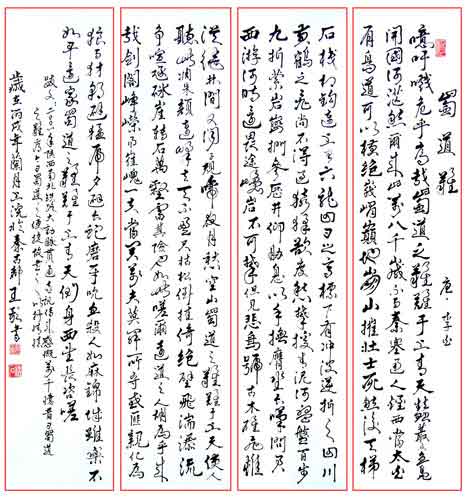 蜀道難
唐·李白
噫吁嚱危乎高哉蜀道之難難于上青天蠶叢及魚鳧
開國何茫然爾來四萬八千歲不與秦塞通人煙西當太白
有鳥道可以橫絕峨嵋巔地崩山摧壯士死然後天梯
石棧相鉤連上有六龍回日之高標下有沖波逆折之回川
黃鶴之飛尚不得過猿猱欲度愁攀援青泥何盤盤百步
九折縈岩巒捫參歷井仰脅息以手撫膺坐長嘆問君
西遊何時還畏途巉岩不可攀但見悲鳥號古木雄飛雌
從繞林間又聞子規啼夜月愁空山蜀道之難難于上青天使人
聽此凋朱顏連峰去天不盈尺枯松倒挂倚絕壁飛湍瀑流
爭喧豗砯崖轉石萬壑雷其險也如此嗟爾遠道之人胡為乎來
哉劍閣崢嶸而崔嵬一夫當關萬夫莫開所守或匪親化為
狼與豺朝避猛虎夕避長蛇磨牙吮血殺人如麻錦城雖樂不
如早還家蜀道之難難于上青天側身西望長咨嗟
歲在丙戌年蘭月上浣於秦古都